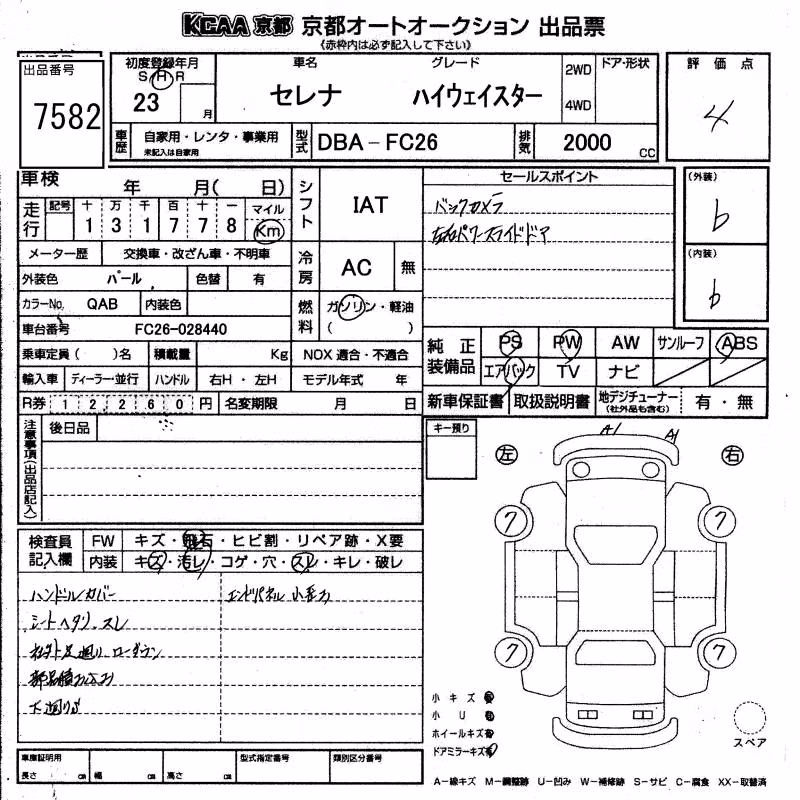 KCAA 京都 京都オートオークション 出品票
《赤枠内は必ず記入して下さい》
出品番号
7582
初度登録年月
S H R
23 月
車名 グレード
セレナ ハイウェイスター
2WD
4WD
ドア・形状
評価点
4
車歴 自家用・レンタ・事業用
未記入は自家用
型式 DBA－FC26
排気 2000 CC
車検 年 月( 日)
走行 記号 十 万 千 百 十 一 マイル
1 3 1 7 7 8 Km
メーター歴 交換車・改ざん車・不明車
外装色 パール 色替 有
カラーNo. QAB 内装色
車台番号 FC26-028440
乗車定員( )名 積載量 Kg NOX適合・不適合
輸入車 ディーラー・並行 ハンドル 右H・左H モデル年式 年
R券 1 2 2 6 0 円 名変期限 月 日
シフト IAT
冷房 AC 無
燃料 ガソリン・軽油
( )
セールスポイント
バックカメラ
左右パワースライドドア
(外装)
b
(内装)
b
純正装備品 PS PW AW サンルーフ ABS
エアバック TV ナビ
新車保証書 取扱説明書 地デジチューナー 有・無
(社外品も含む)
注意事項(出品店記入)
後日品
キー預り
左 右
A1 A1
7 7
7 7
検査員記入欄
FW キズ・飛石・ヒビ割・リペア跡・X要
内装 キズ・汚レ・コゲ・穴・スレ・キレ・破レ
ハンドルカバー
シートヘタリ、スレ
エンドパネル
ローダウン
小キズ
小U
ホイールキズ
ドアミラーキズ
スペア
車庫証明用
長さ cm 幅 cm 高さ cm
型式指定番号 類別区分番号
A－線キズ M－調整跡 U－凹み W－補修跡 S－サビ C－腐食 XX－取替済